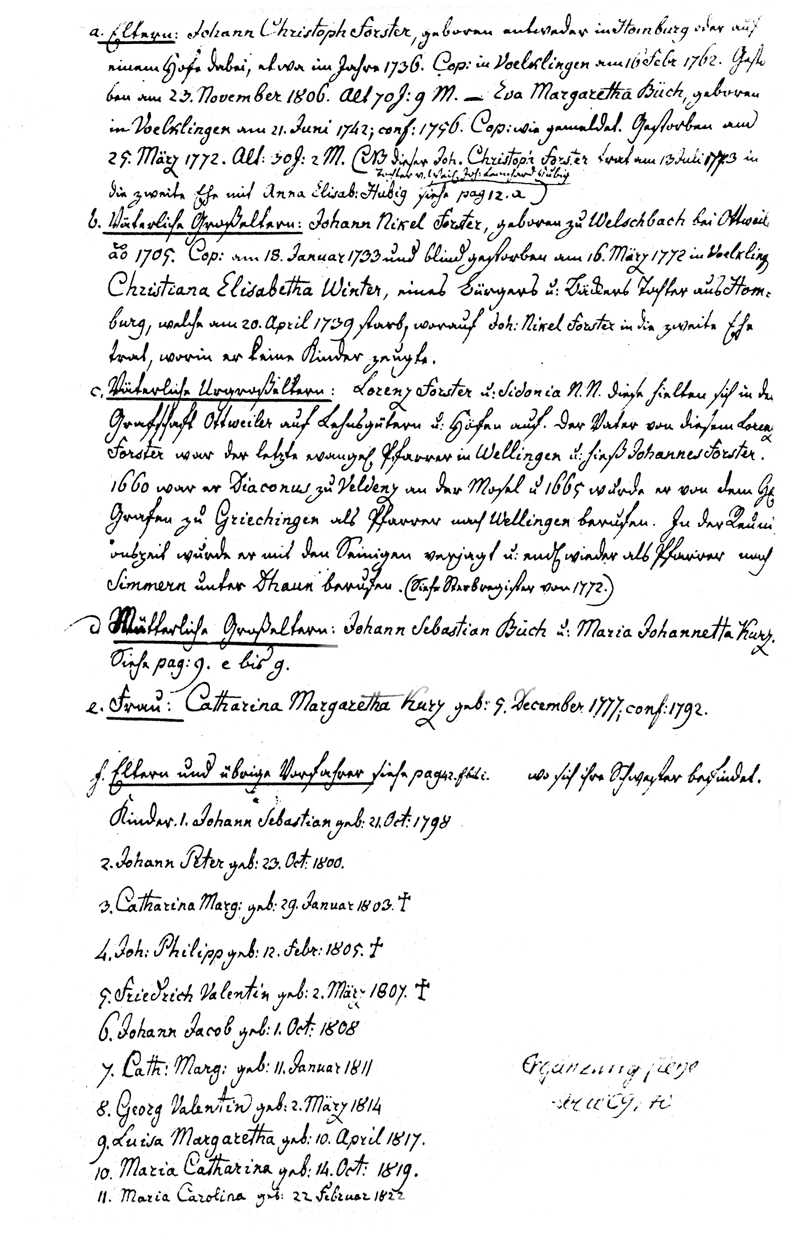 a. Eltern: Johann Christoph Forster, geboren entweder in Homburg oder auf
einem Hofe dabei, etwa im Jahre 1736. Cop: in Voelklingen am 16 Febr 1762. Gestor
ben am 23. November 1806. Alt 70 J: 9 M. — Eva Margaretha Büch, geboren
in Voelklingen am 21. Juni 1742; conf: 1756. Cop: wie gemeldet. Gestorben am
25. März 1772. Alt: 30 J: 2 M. (NB dieser Joh. Christoph Forster trat am 13 Juli 1773 in
Tochter v.
die zweite Ehe mit Anna Elisab: Hubig siehe pag 12. a)
b. Väterliche Großeltern: Johann Nikel Forster, geboren zu Welschbach bei Ottweil
ao 1705. Cop: am 18. Januar 1733 und blind gestorben am 16. März 1772 in Voelkling
Christiana Elisabetha Winter, eines Bürgers u: Bäckers Tochter aus Hom:
burg, welche am 20. April 1739 starb, worauf Joh: Nikel Forster in die zweite Ehe
trat, worin er keine Kinder zeugte.
c. Väterliche Urgroßeltern: Lorenz Forster u: Sidonia N.N. diese hielten sich in der
Grafschaft Ottweiler auf Lehnsgütern u: Höfen auf. Der Vater von diesem Lorenz
Forster war der letzte evangel Pfarrer in Wellingen u: hieß Johannes Forster.
1660 war er Diaconus zu Veldenz an der Mosel u 1665 wurde er von dem
Grafen zu Griechingen als Pfarrer nach Wellingen berufen. In der Reuni
onszeit wurde er mit den Seinigen verjagt u: endl wieder als Pfarrer nach
Simmern unter Dhaun berufen. (Siehe Sterbregister von 1772.)
d Mütterliche Großeltern: Johann Sebastian Büch u: Maria Johannetta Kurz.
Siehe pag: 9. e bis g.
e. Frau: Catharina Margaretha Kurz geb: 5. December 1777; conf: 1792.
f. Eltern und übrige Vorfahrer siehe pag 42. f bis i. wo sich ihre Schwester befindet.
Kinder. 1. Johann Sebastian geb: 21. Oct: 1798
2. Johann Peter geb: 23. Oct: 1800.
3. Catharina Marg: geb: 29. Januar 1803. †
4. Joh: Philipp geb: 12. Febr: 1805. †
5. Friedrich Valentin geb: 2. März 1807. †
6. Johann Jacob geb: 1. Oct: 1808
7. Cath: Marg: geb: 11. Januar 1811
8. Georg Valentin geb: 2. März 1814
9. Luisa Margaretha geb: 10. April 1817.
10. Maria Catharina geb: 14. Oct: 1819.
11. Maria Carolina geb: 22 Februar 1822
Ergänzung siehe